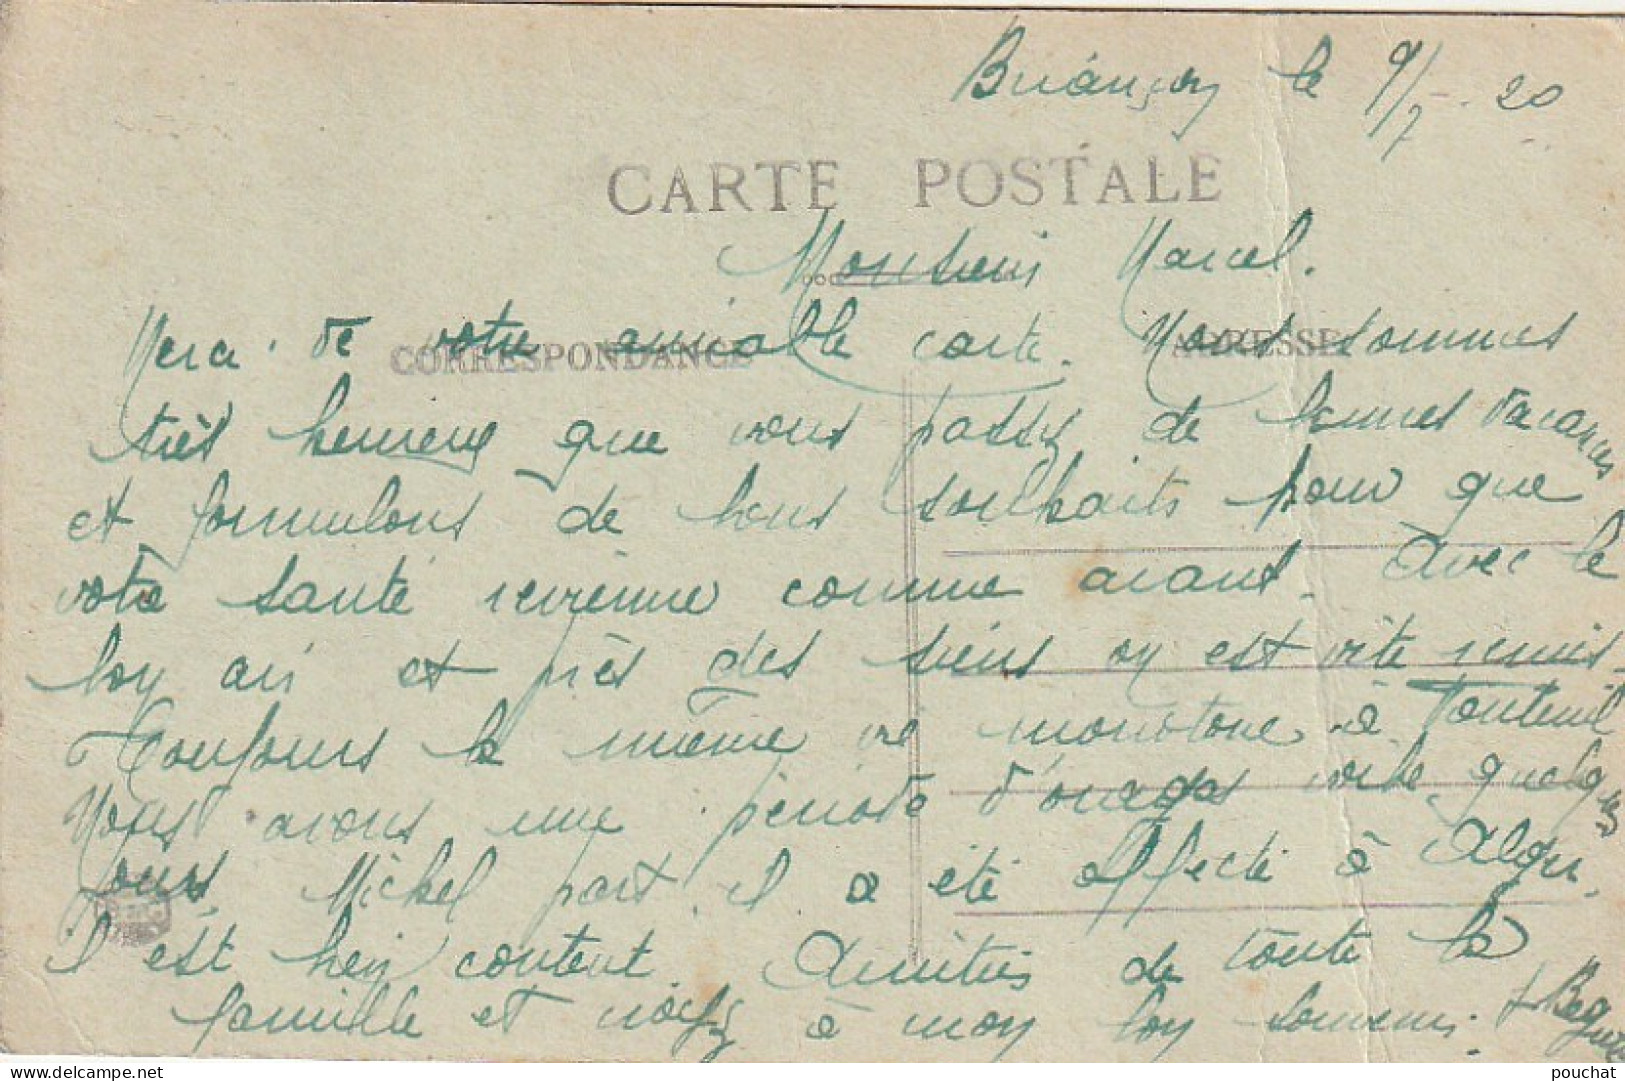 Briançon le 9/7 - 20
CARTE POSTALE
Monsieur Marcel.
Merci de votre aimable carte. Nous sommes
CORRESPONDANCE
ADRESSE
très heureux que vous passez de bonnes vacances
et formulons de bons souhaits pour que
votre santé revienne comme avant. Avec le
bon air et près des siens on est vite remis.
Toujours la même vie monotone à
Nous avons une période d'orages voilà quelques
jours. Michel part il a été affecté à
il est bien content. Amitiés de toute la
famille et à mon bon souvenir.
pouchat